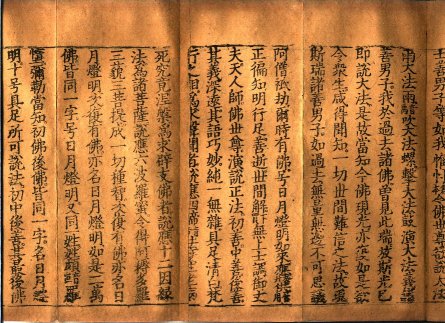 善男子等如我惟忖今佛
雨大法雨吹大法螺擊大法鼓演大法義諸
善男子我於過去諸佛曾見此瑞放斯光已
即說大法是故當知今佛現光亦復如是欲
令衆生咸得聞知一切世間難信之法故現
斯瑞諸善男子如過去無量無邊不可思議
阿僧祇劫爾時有佛号日月燈明如來應供
正徧知明行足善逝世間解無上士調御丈
夫天人師佛世尊演說正法初善中善後善
其義深遠其語巧妙純一無雜具足清白梵
行之相為求聲聞者說應四諦法度生老病
死究竟涅槃為求辟支佛者說應十二因緣
法為諸菩薩說應六波羅蜜令得阿耨多羅
三藐三菩提成一切種智次復有佛亦名日
月燈明次復有佛亦名日月燈明如是二萬
佛皆同一字号日月燈明又同一姓姓頗羅
墮彌勒當知初佛後佛皆同一字名日月燈
明十号具足所可說法初中後善其最後佛